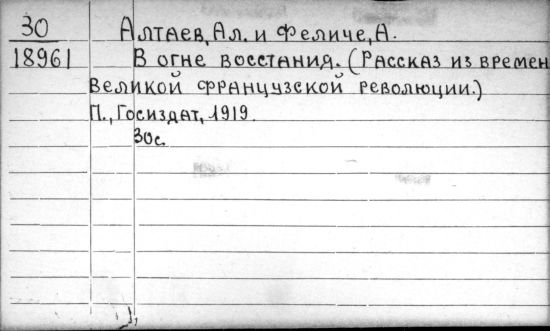 30 Алтаев, Ал. и Феличе, А.
18961 В огне восстания. (Рассказ из времен
великой французской революции.)
П., Госиздат, 1919.
30с.